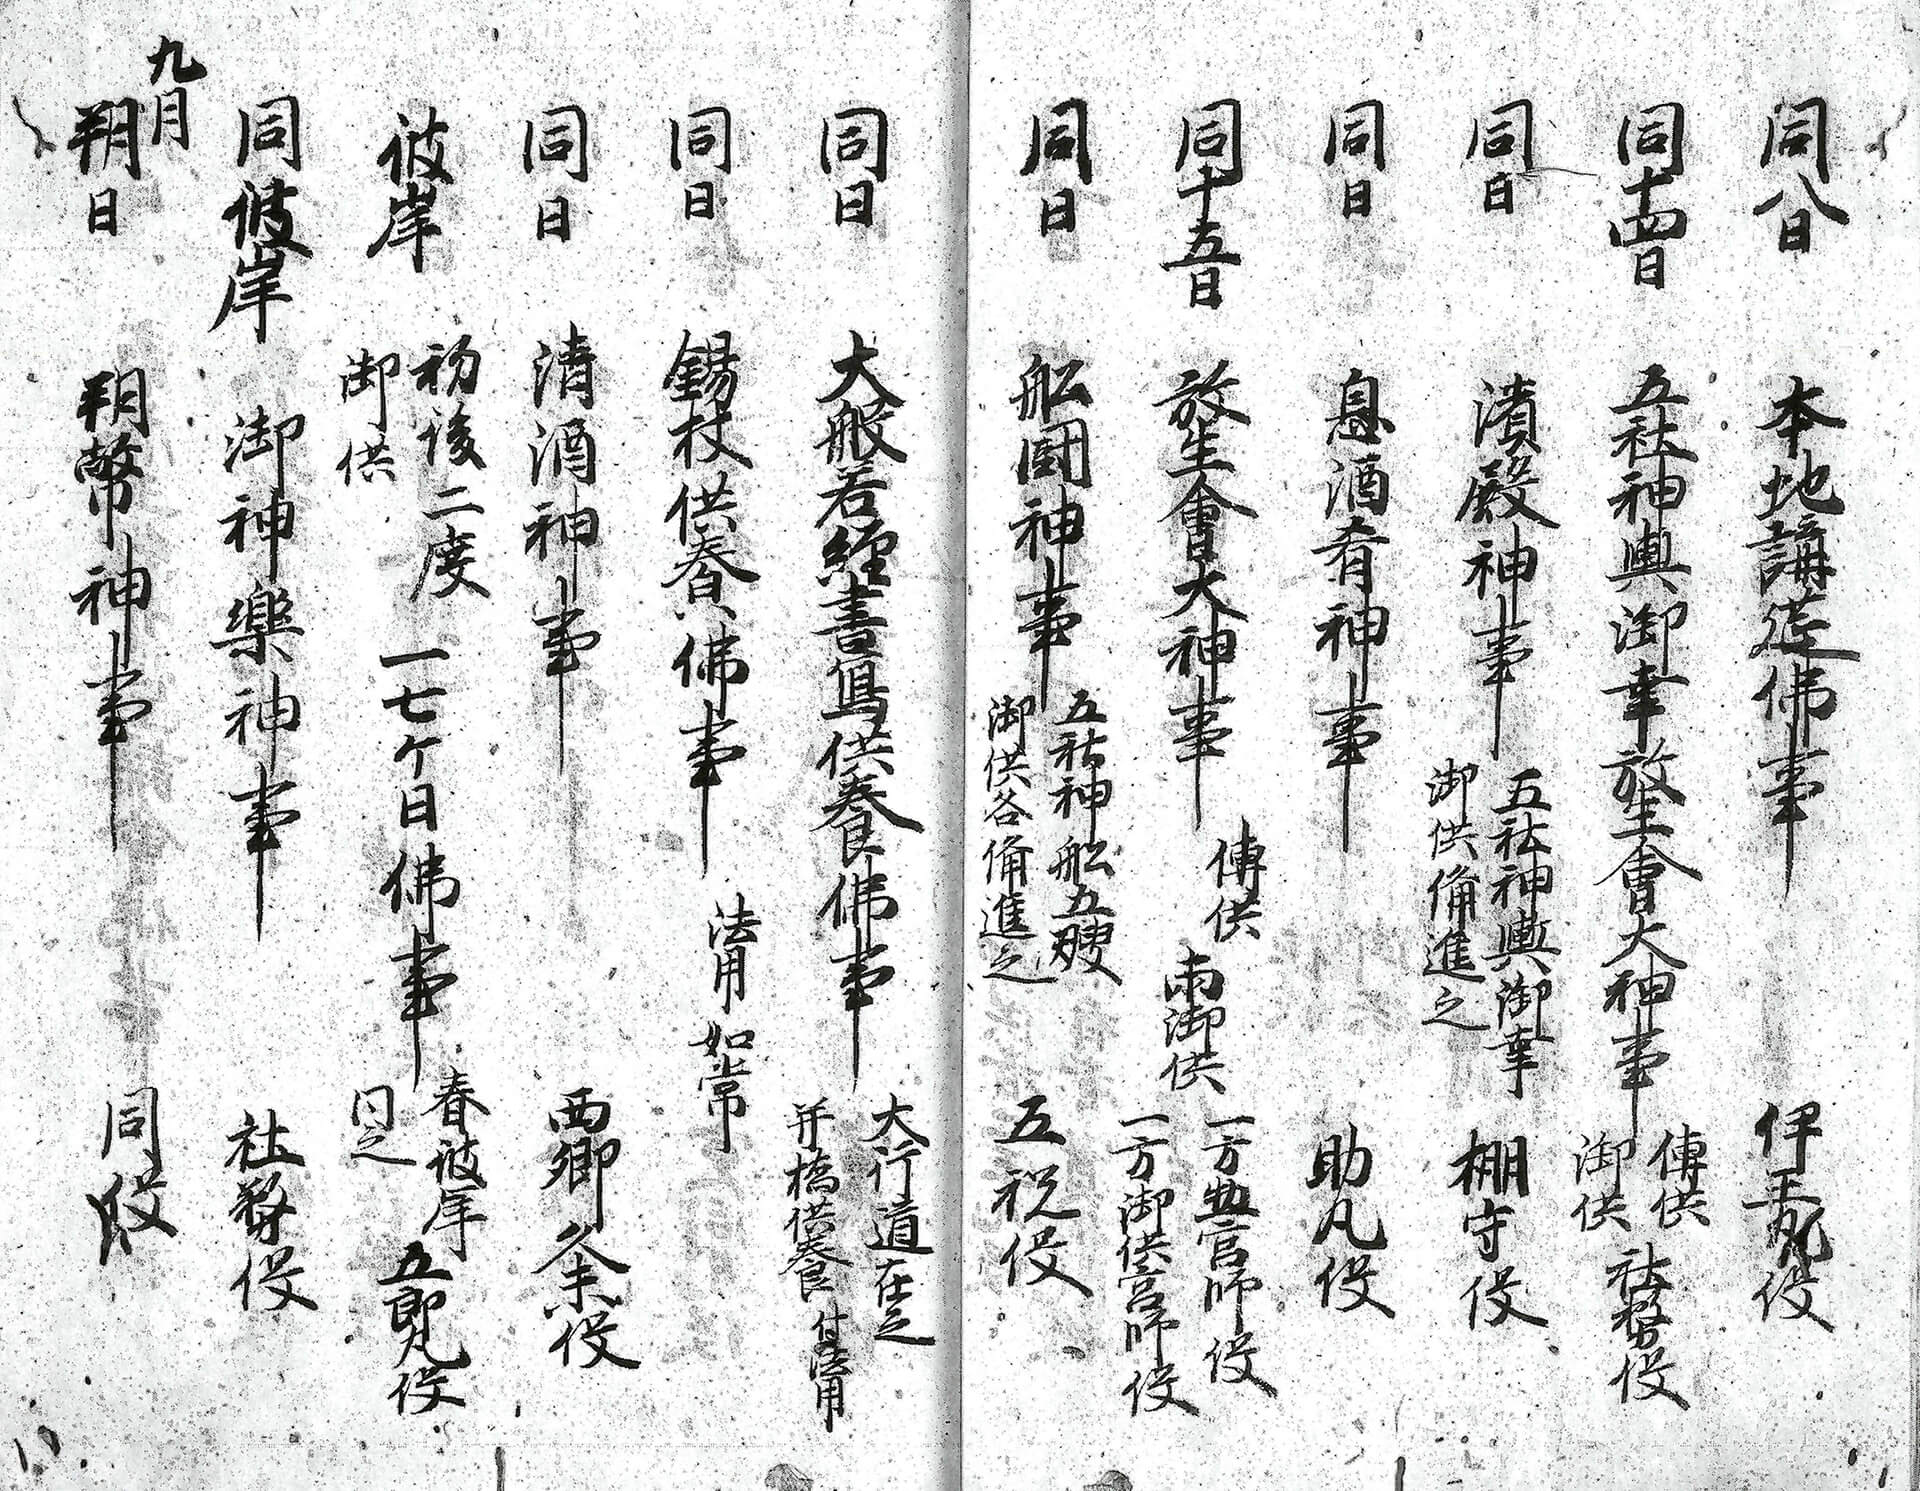 同八日 本地講莚佛事 伊王丸役
同十四日 五社神輿御幸放生會大神事 傳供 御供 社務役
同日 濱殿神事 五社神輿御幸 御供備進之 棚守役
同日 息酒肴神事 助凡役
同十五日 放生會大神事 傳供 南御供 一方典官師役 一方御供官師役
同日 舩國神事 五社神舩五艘 御供各備進之 五祝役
同日 大般若經書寫供養佛事 大行道在之 并橋供養 付法用
同日 錫杖供養佛事 法用如常
同日 清酒神事 西郷条役
彼岸 初後二度 御供 一七ケ日佛事 春彼岸 同之 五郎凡役
同彼岸 御神樂神事 社務役
九月
朔日 朔幣神事 同役